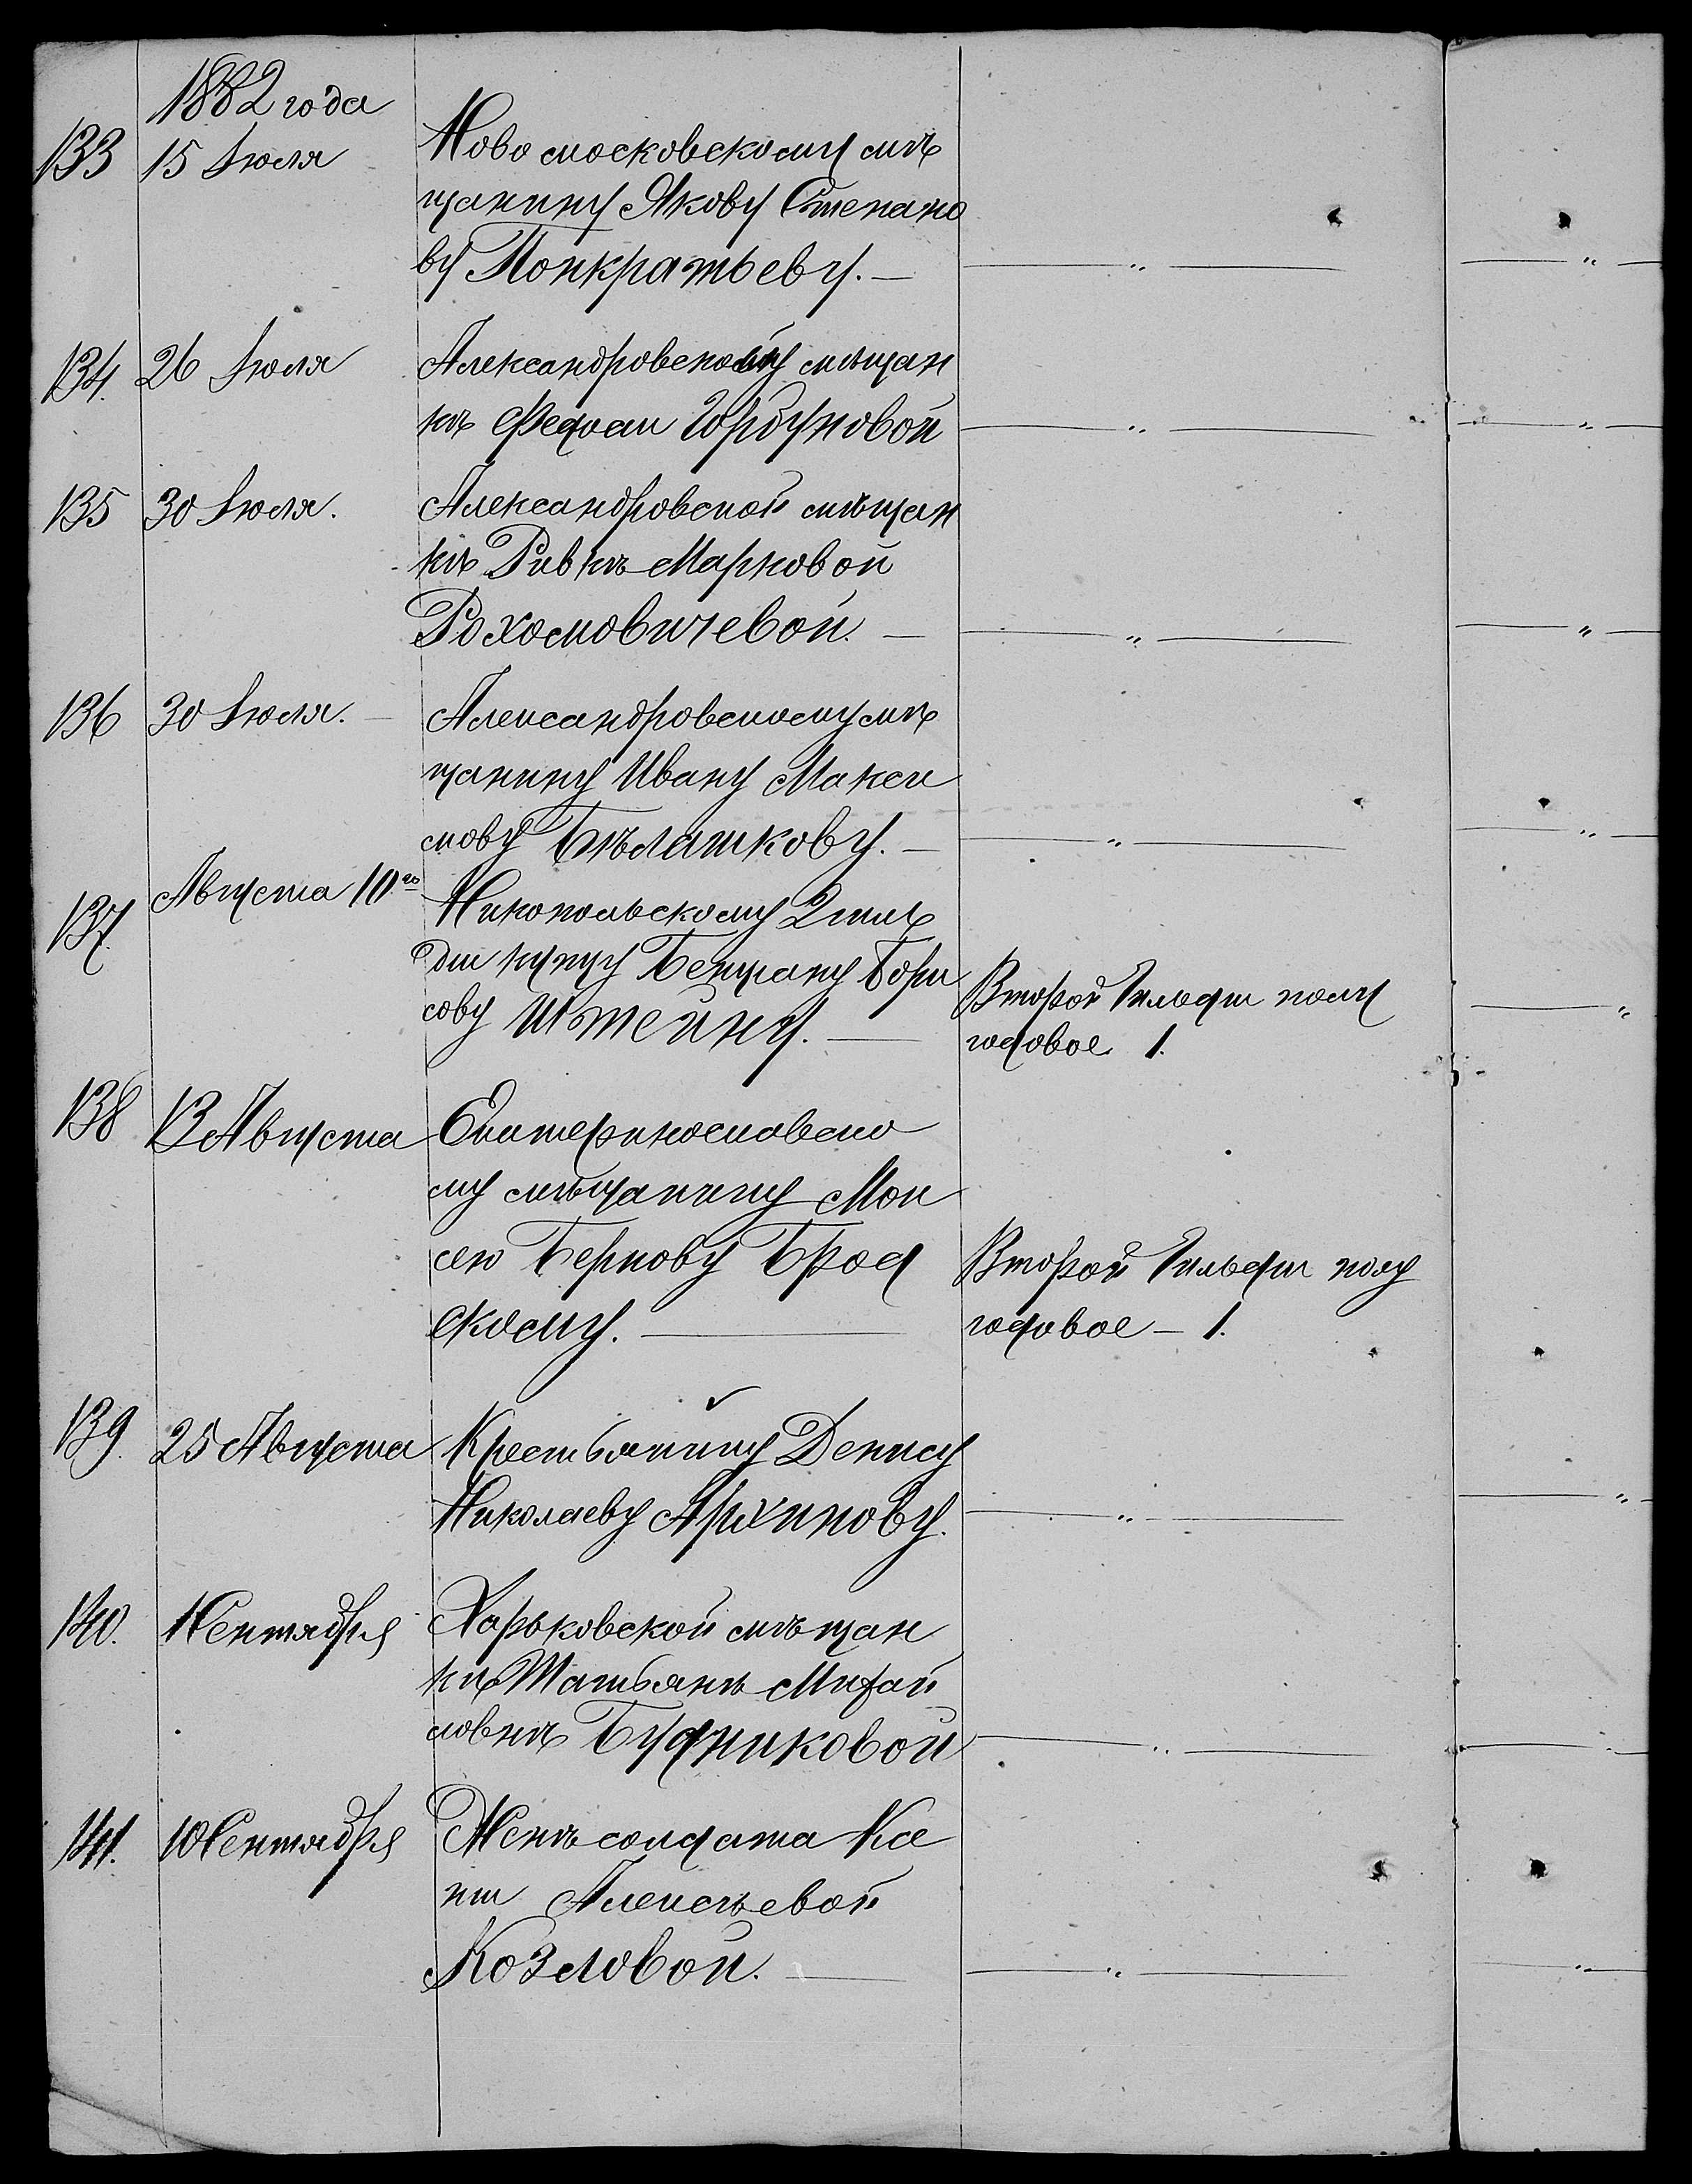 1882 года
133 15 Июля Ново московскому мѣ
щанину Якову Степано
ву Понкратьеву. —
— " — — " —
134. 26 Июля Александровскому мѣщан
кѣ Федоси Горбуновой — " — — " —
135 30 Июля. Александровской мѣщан
кѣ Ривкѣ Марковой
Рохомовичевой. — — " — — " —
136 30 Июля. — Александровскому мѣ
щанину Ивану Макси
мову Бѣлашкову. — — " — — " —
137. Августа 10го Никопольскому 2 гиль
діи купцу Бенціану Бори
сову Штейну. — Второй Гильдіи полу
годовое 1. — "
138 13 Августа Екатеринославско
му мѣщанину Мои
сею Беркову Брод
скому. — Второй Гильдіи полу
годовое — 1.
139. 25 Августа Крестьянину Денису
Николаеву Архипову. — " — — " —
140. 1 Сентября Харьковской мѣщан
кѣ Татьянѣ Михай
ловнѣ Будниковой — " — — " —
141. 10 Сентября Женѣ солдата Ксе
ніи Алексѣевой
Козловой. — — " — — " —